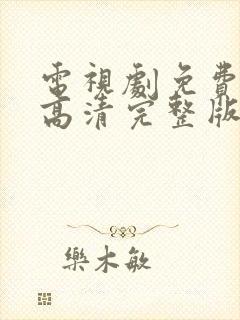 電視劇免費
高清完整版
樂木敏